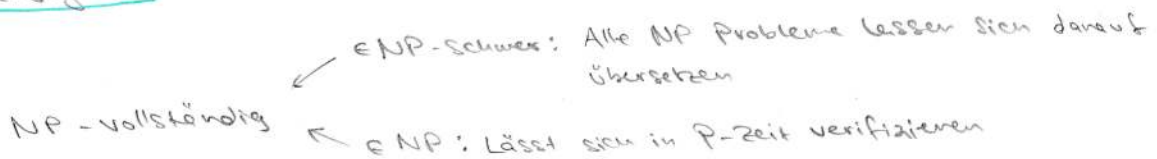 ENP-schwer: Alle NP Probleme lassen sich darauf
übersetzen
NP-vollständig
ENP: Lässt sich in P-Zeit verifizieren